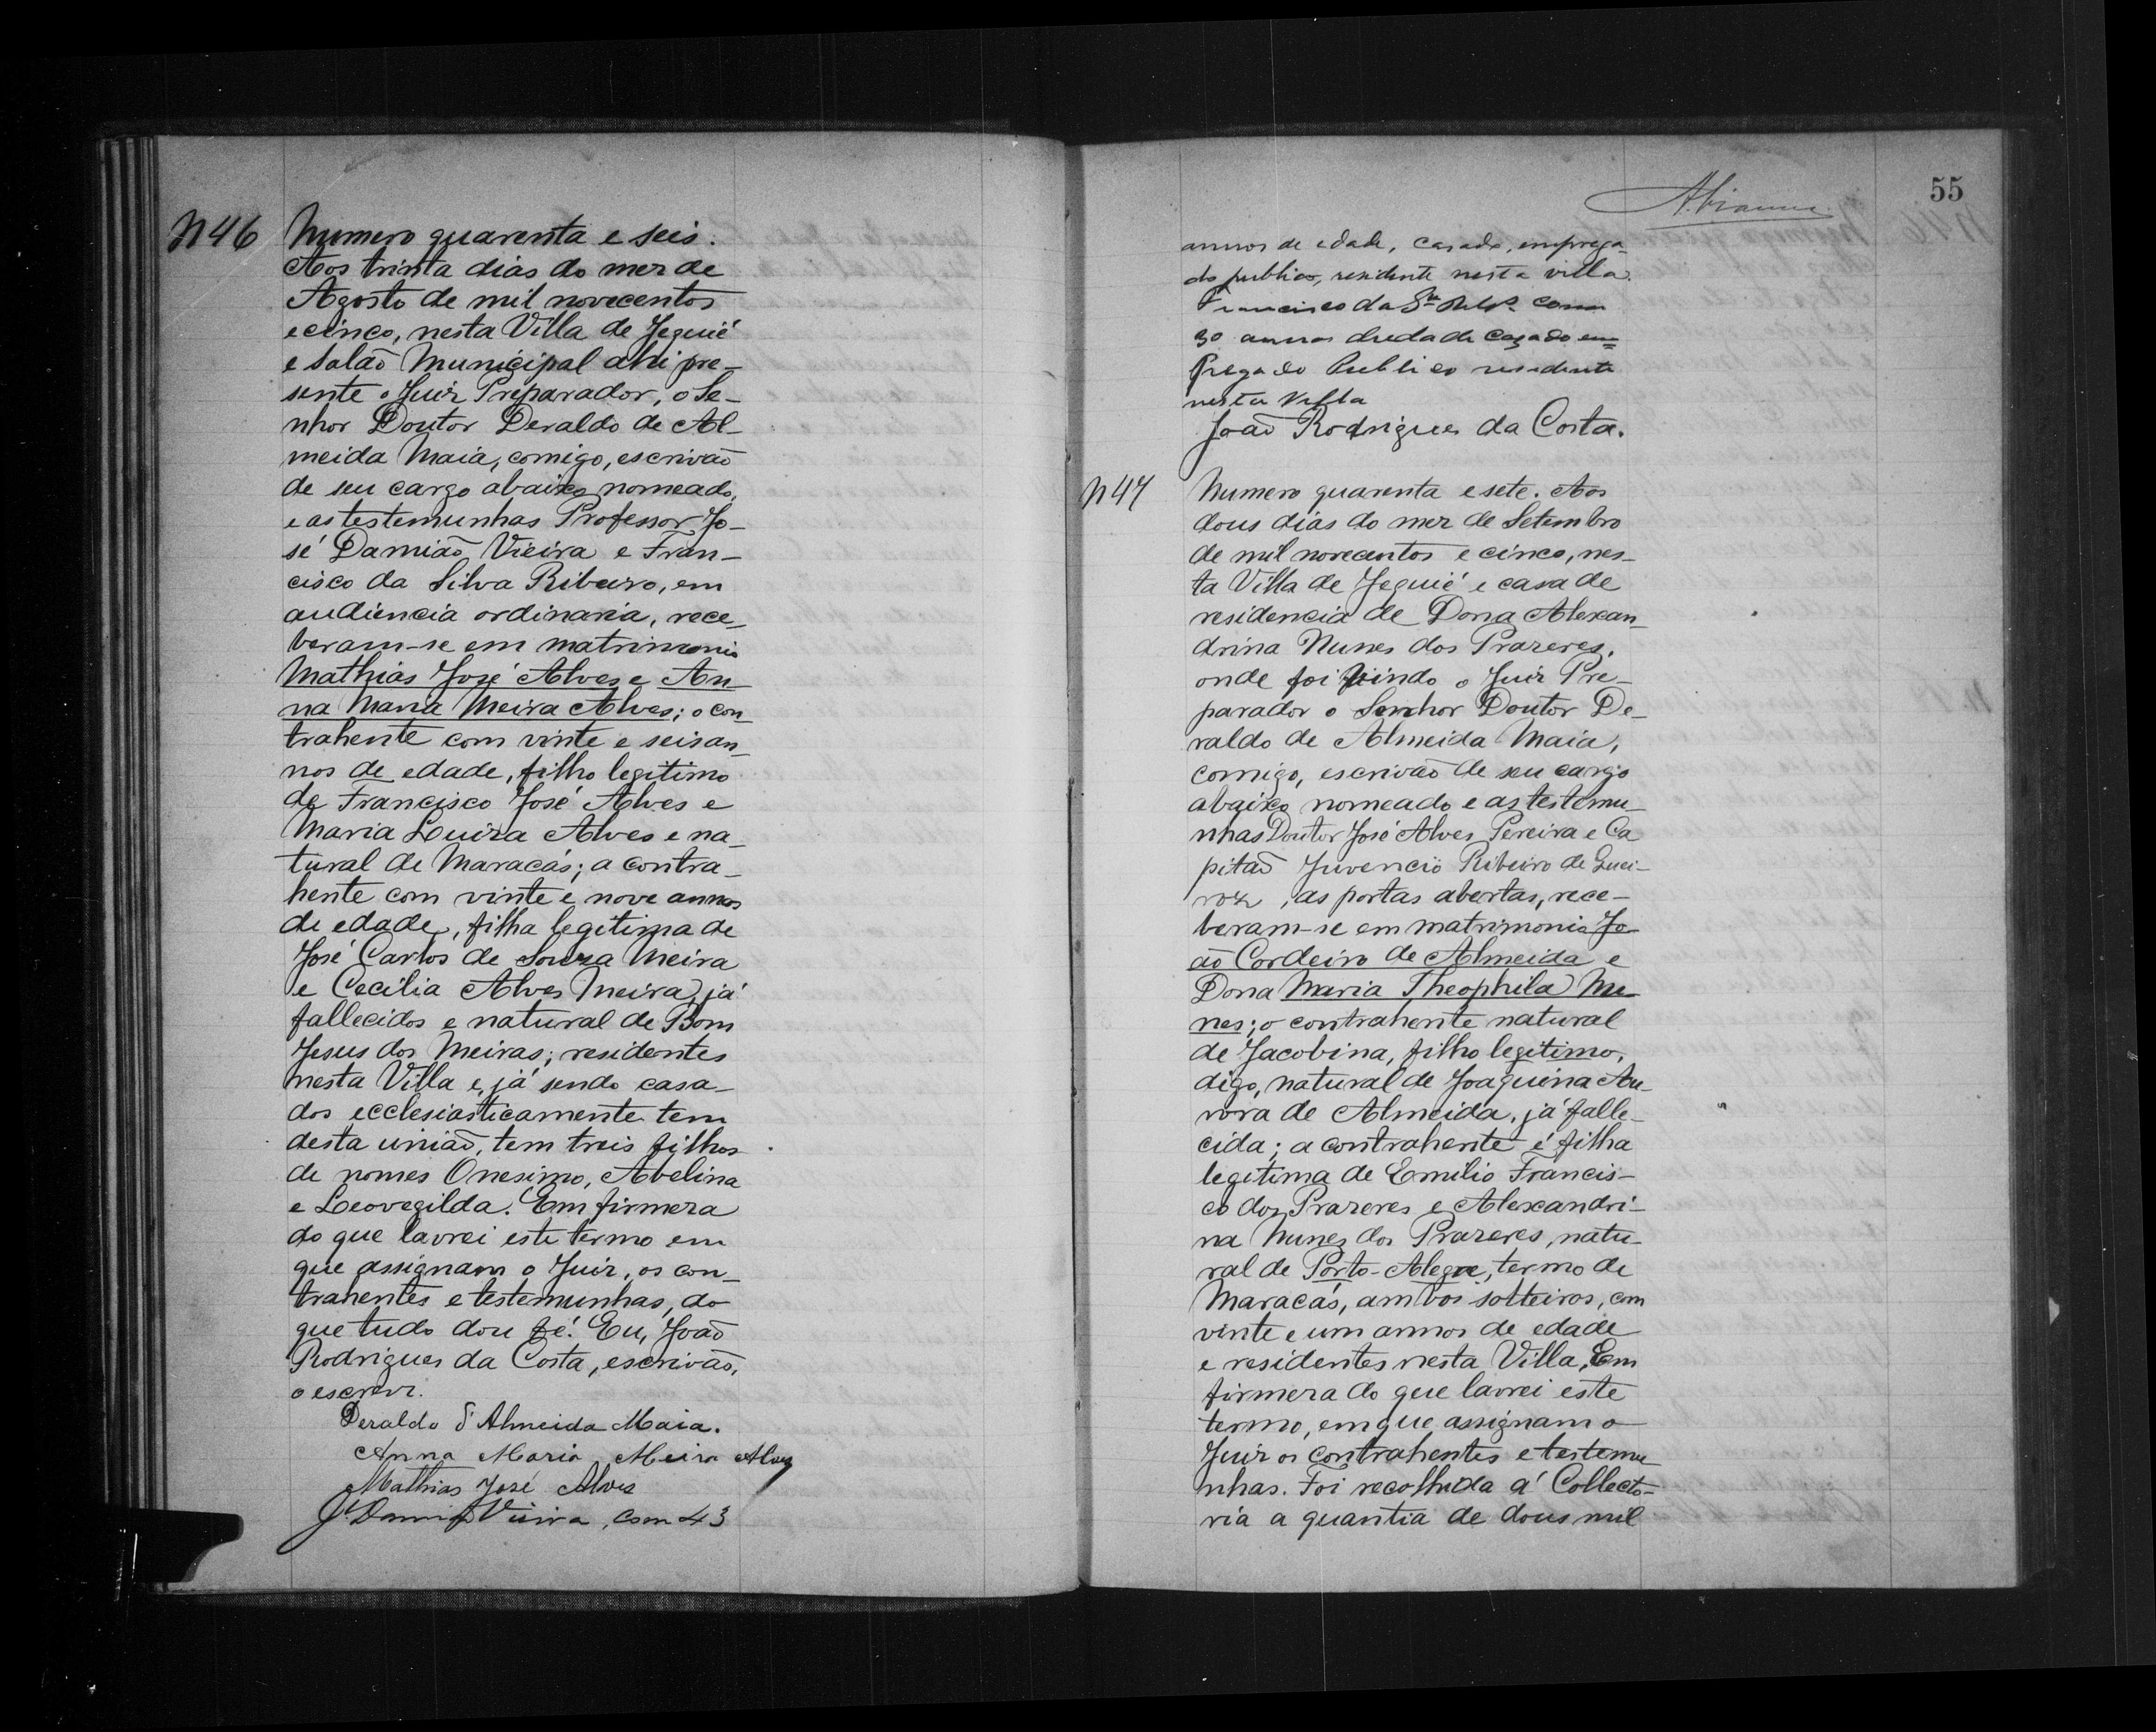 N 46
Numero quarenta e seis.
Aos trinta dias do mez de
Agosto de mil novecentos
e cinco, nesta Villa de Jequié
e salão Municipal ahi pre-
sente o Juiz Preparador, o Se-
nhor Doutor Deraldo de Al-
meida Maia, comigo, escrivão
de seu cargo abaixo nomeado,
e as testemunhas Professor Jo-
sé Damião Vieira e Fran-
cisco da Silva Ribeiro, em
audiencia ordinaria, rece-
beram-se em matrimonio
Mathias José Alves e An-
na Maria Meira Alves; o con-
trahente com vinte e seis an-
nos de edade, filho legitimo
de Francisco José Alves e
Maria Louiza Alves e na-
tural de Maracás; a contra-
hente com vinte e nove annos
de edade, filha legitima de
José Carlos de Souza Meira
e Cecilia Alves Meira, já
fallecidos e natural de Bom
Jesus dos Meiras; residentes
nesta Villa e, já sendo casa-
dos ecclesiasticamente tem
desta união, tem tres filhos
de nomes Onesimo, Avelina
e Leovegilda. Em firmeza
do que lavrei este termo em
que assignam o Juiz, os con-
trahentes e testemunhas, do
que tudo dou fé. Eu, João
Rodrigues da Costa, escrivão,
o escrevi.
Deraldo d'Almeida Maia.
Anna Maria Meira Alves
Mathias José Alves
Jé Damião Vieira, com 43
55
annos de edade, casado, emprega-
do publico, residente nesta villa.
Francisco da Sa Ribro com
30 annos de edade cazado em=
pregado Publico residente
nesta Villa
João Rodrigues da Costa.
N 47
Numero quarenta e sete. Aos
dous dias do mez de Setembro
de mil novecentos e cinco, nes-
ta Villa de Jequié e casa de
residencia de Dona Alexan-
drina Nunes dos Prazeres,
onde foi vindo o Juiz Pre-
parador o Senhor Doutor De-
raldo de Almeida Maia,
comigo, escrivão de seu cargo
abaixo nomeado e as testemu-
nhas Doutor José Alves Pereira e Ca
pitão Juvencio Ribeiro de Quei-
roz, as portas abertas, rece-
beram-se em matrimonio Jo-
ão Cordeiro de Almeida e
Dona Maria Theophila Nu-
nes; o contrahente natural
de Jacobina, filho legitimo,
digo, natural de Joaquina Au-
rora de Almeida, já falle-
cida; a contrahente é filha
legitima de Emilio Francis-
co dos Prazeres e Alexandri-
na Nunes dos Prazeres, natu-
ral de Porto-Alegre, termo de
Maracás, ambos solteiros, com
vinte e um annos de edade
e residentes nesta Villa. Em
firmeza do que lavrei este
termo, em que assignam o
Juiz os contrahentes e testemu-
nhas. Foi recolhida á Collecto-
ria a quantia de dous mil